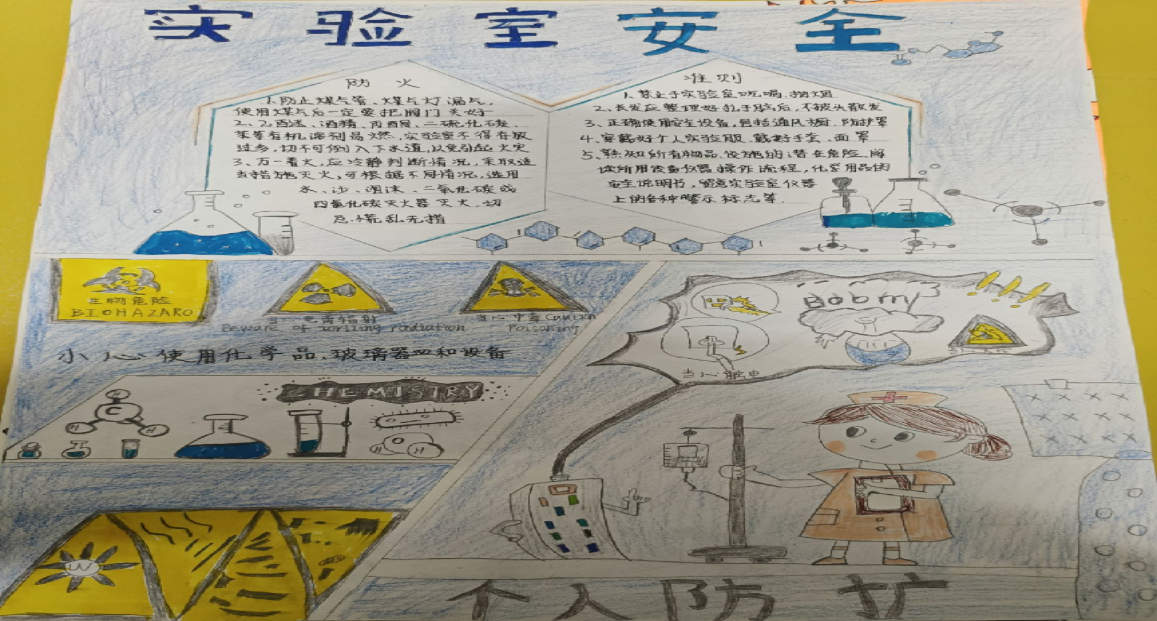 实验室安全
防火
1.防止煤气管、煤气灯漏气,
使用煤气后一定要把阀门关好
2、乙醚、酒精、丙酮、二硫化碳、
苯等有机溶剂易燃,实验室不得存放
过多,切不可倒入下水道,以免引起火灾
3、万一着火,应冷静判断情况,采取适
当措施灭火,可根据不同情况,选用
水、沙、泡沫、二氧化碳或
四氯化碳灭火器灭火,切
忌慌乱无措
准则
1.禁止于实验室吃,喝,抽烟
2、长发应整理好扎于脑后,不披头散发
3、正确使用安全设备,包括通风橱、防护罩
4、穿戴好个人实验服、戴好手套、面罩
5、熟知所有物品、设施的潜在危险,阅
读所用设备仪器操作流程,化学用品的
安全说明书,留意实验室仪器
上的各种警示标志等
生物危险
BIOHAZARD
Beware of ionizing radiation
当心中毒 Caution
Poisoning
小心使用化学品、玻璃器皿和设备
CHEMISTRY
C
H
H
H
Boom!
!!!
当心触电
W
个人防护